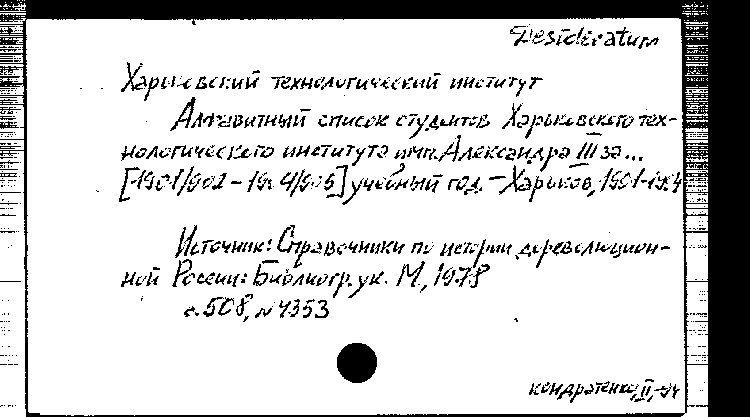 Desideratum
Харьковский технологический институт
Алфавитный список студентов Харьковского тех-
нологического института имп. Александра III за...
[1901/902 - 1904/905] учебный год. - Харьков, 1901-1904
Источник: Справочники по истории дореволюцион-
ной России: Библиогр. ук. М., 1978
с. 508, № 4353
Кондратенко, II,-94